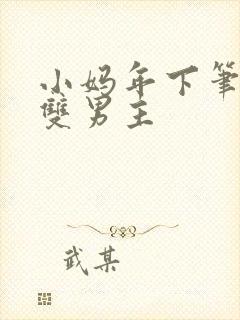 小妈年下笔
雙男主
武某